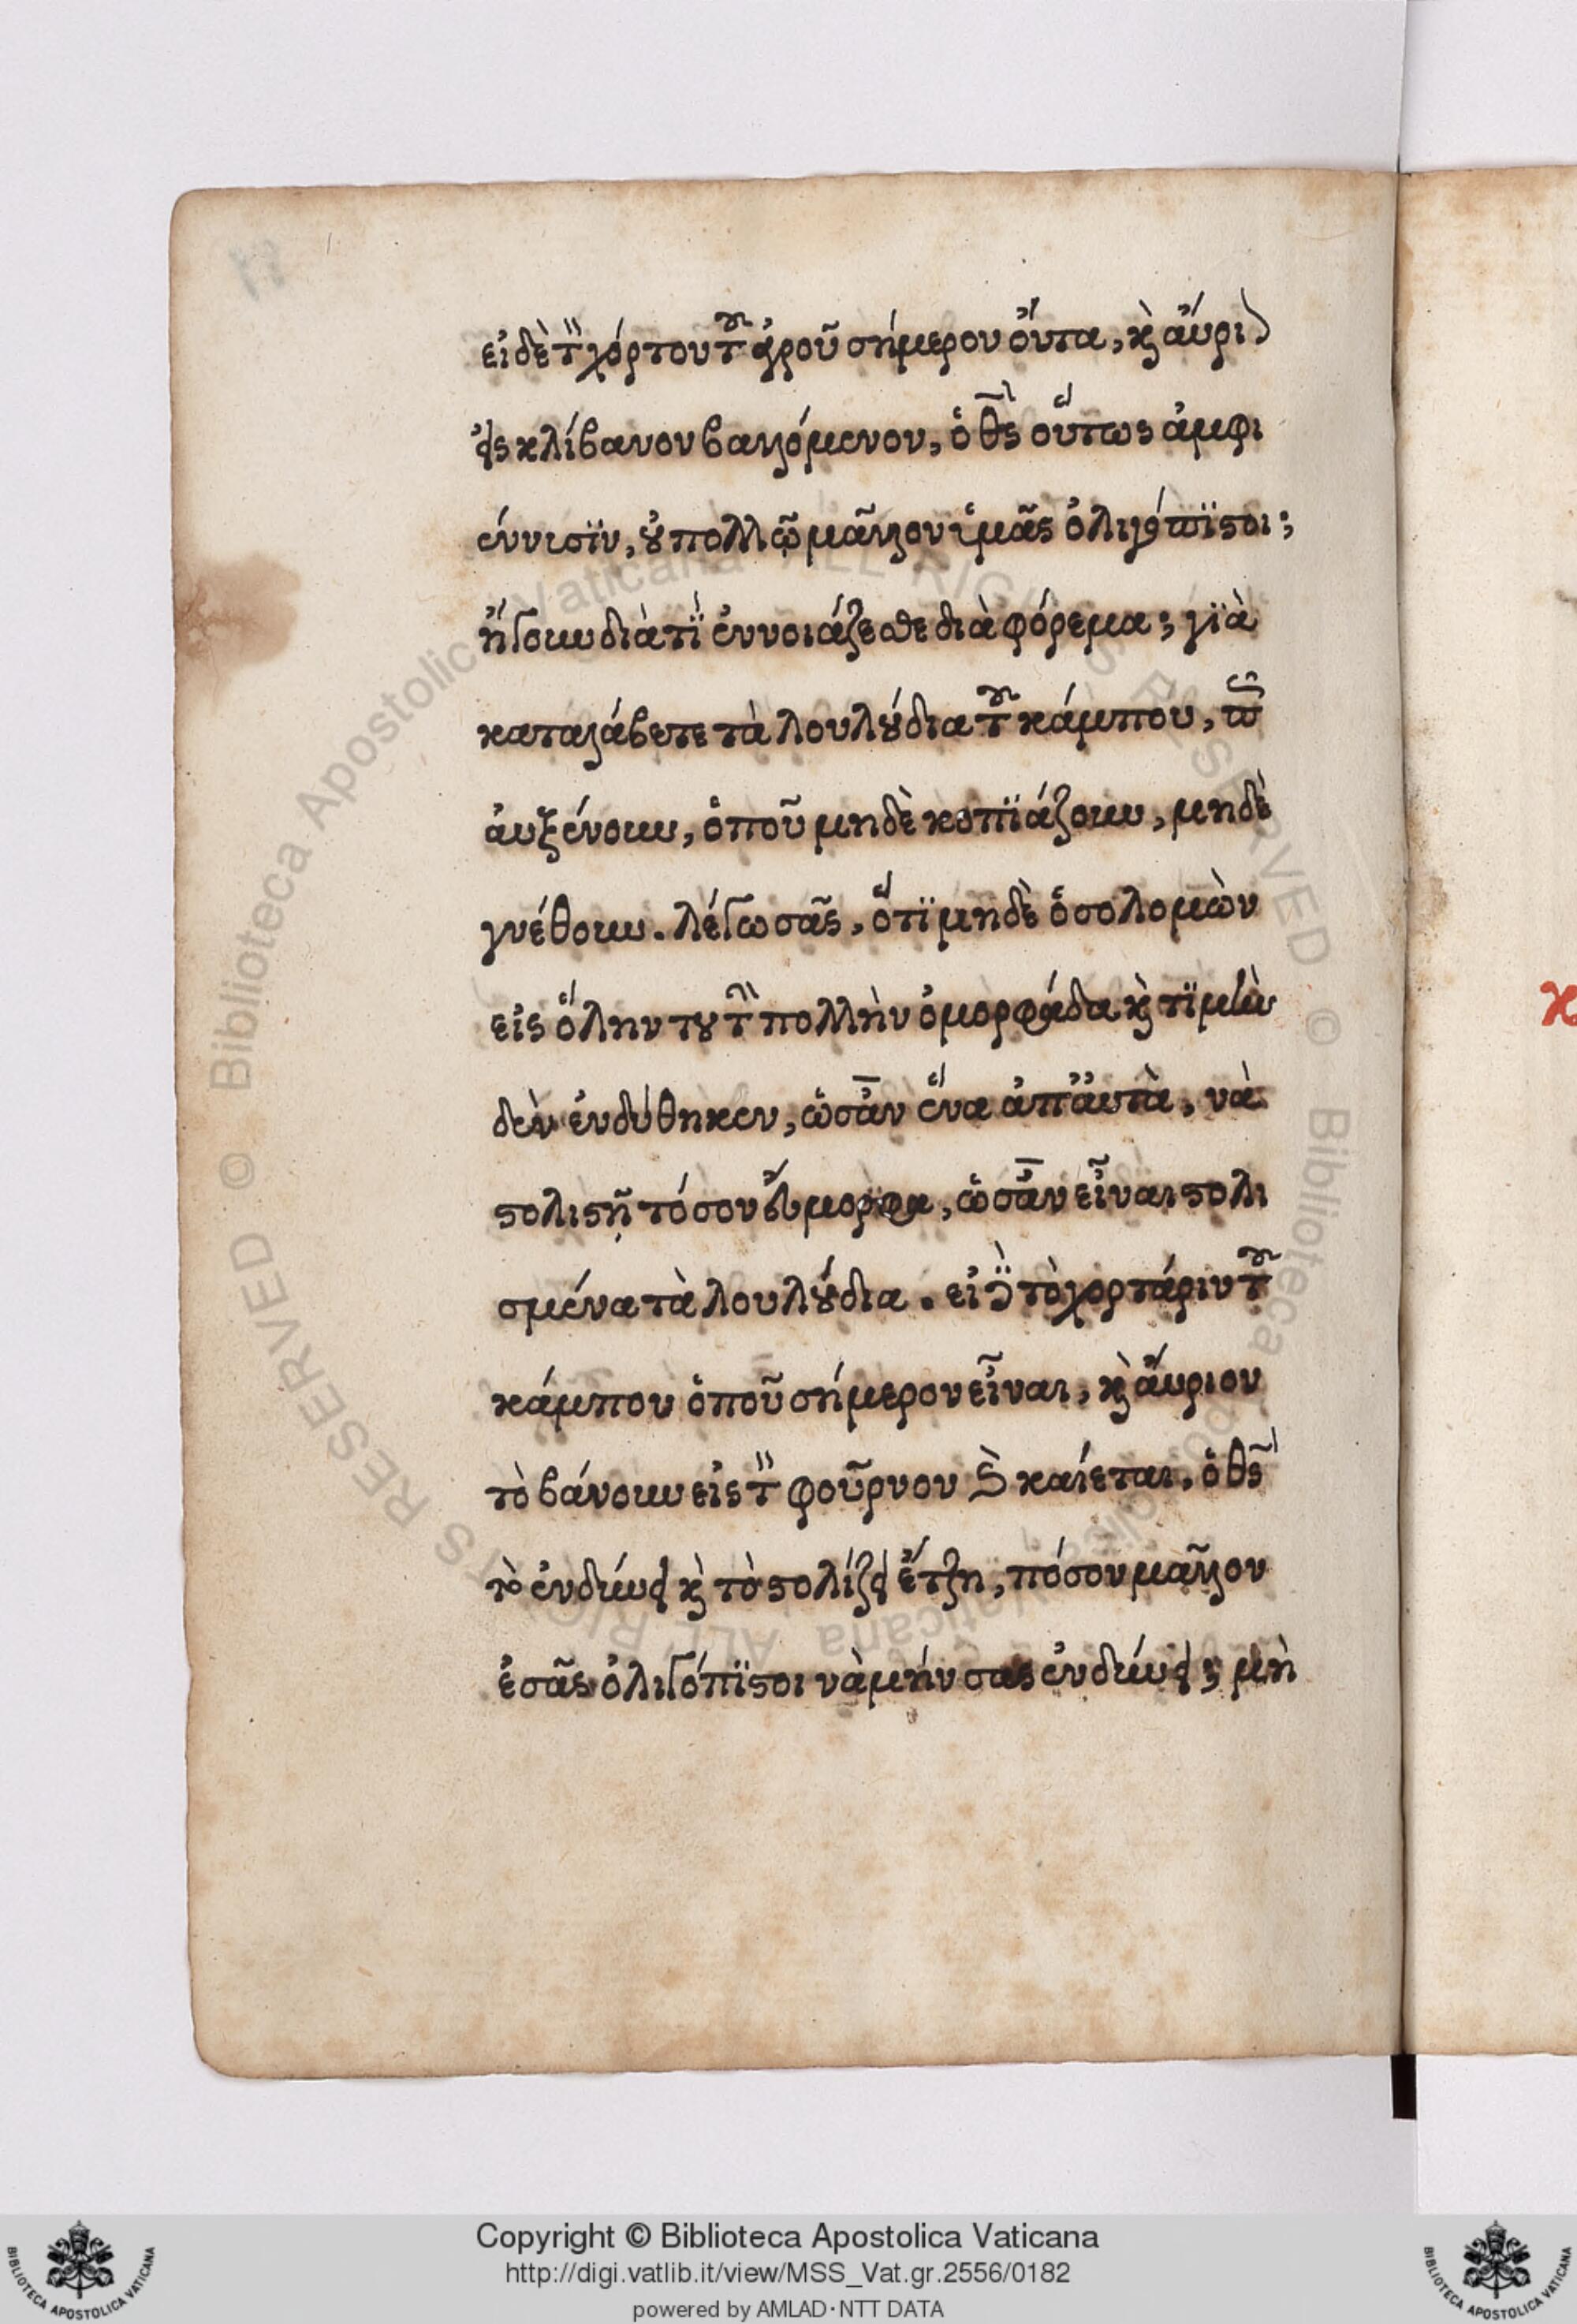 εἰδὲ τὸν χόρτον τοῦ ἀγροῦ σήμερον ὄντα, κ̀ αὔριον
εἰς κλίβανον βαλλόμενον, ὁ θς̅ οὕτως ἀμφι
έννισϊν, οὐ πολλῶ μᾶλλον ἱμᾶς ὀλιγόπϊστοι;
ἤγουν διὰ τΐ ἐννοιάζεσθε διὰ φόρεμα; γϊὰ
καταλάβετε τὰ λουλούδια τοῦ κάμπου, πῶς
ἀυξένουν, ὁποῦ μηδὲ κοπϊάζουν, μηδὲ
γνέθουν. λέγω σᾶς, ὅτϊ μηδὲ ὁ σολομὼν
εἰς ὅλην του τὴν πολλὴν ὀμορφάδα κ̀ τϊμὴν
δὲν ἐνδύθηκεν, ὡσὰν ἕνα ἀπ' αὐτὰ, νὰ
στολιστῆ τόσον εὔμορφα, ὡσὰν εἶναι στολι
σμένα τὰ λουλούδια. εἰδὲ τὸ χορτάριν τοῦ
κάμπου ὁποῦ σήμερον εἶναι, κ̀ αὔριον
τὸ βάνουν εἰς τὸν φοῦρνον κ̀ καίεται, ὁ θς̅
τὸ ἐνδύνει κ̀ τὸ στολίζει ἔτζη, πόσον μᾶλλον
ἐσᾶς ὀλιγόπϊστοι νὰ μήν σας ἐνδύνει; μὴ
Copyright © Biblioteca Apostolica Vaticana
http://digi.vatlib.it/view/MSS_Vat.gr.2556/0182
powered by AMLAD·NTT DATA